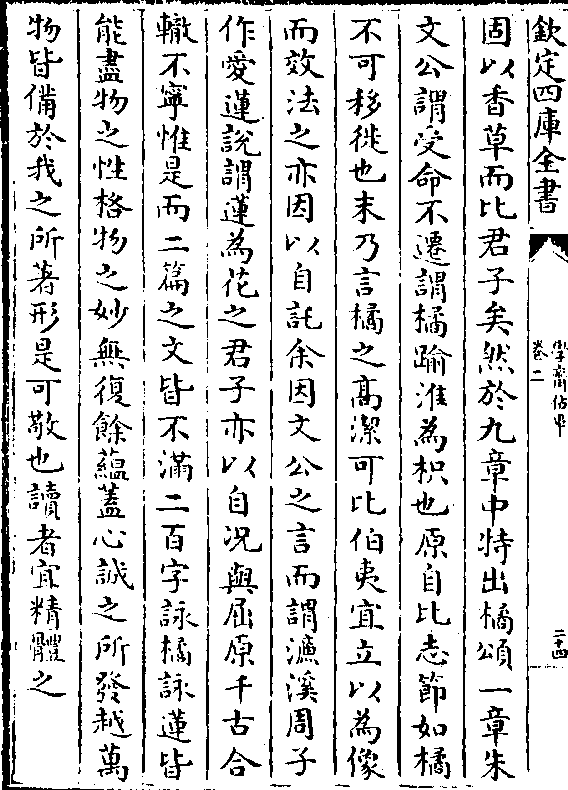 欽定四庫全書
學齋佔畢
卷二
二十四
固以香草而比君子矣然於九章中特出橘頌一章朱
文公謂受命不遷謂橘踰淮為枳也原自比志節如橘
不可移徙也末乃言橘之髙潔可比伯夷宜立以為像
而效法之亦因以自託余因文公之言而謂濂溪周子
作愛蓮說謂蓮為花之君子亦以自况與屈原千古合
轍不寧惟是而二篇之文皆不滿二百字詠橘詠蓮皆
能盡物之性格物之妙無復餘蘊蓋心誠之所發越萬
物皆備於我之所著形是可敬也讀者宜精體之